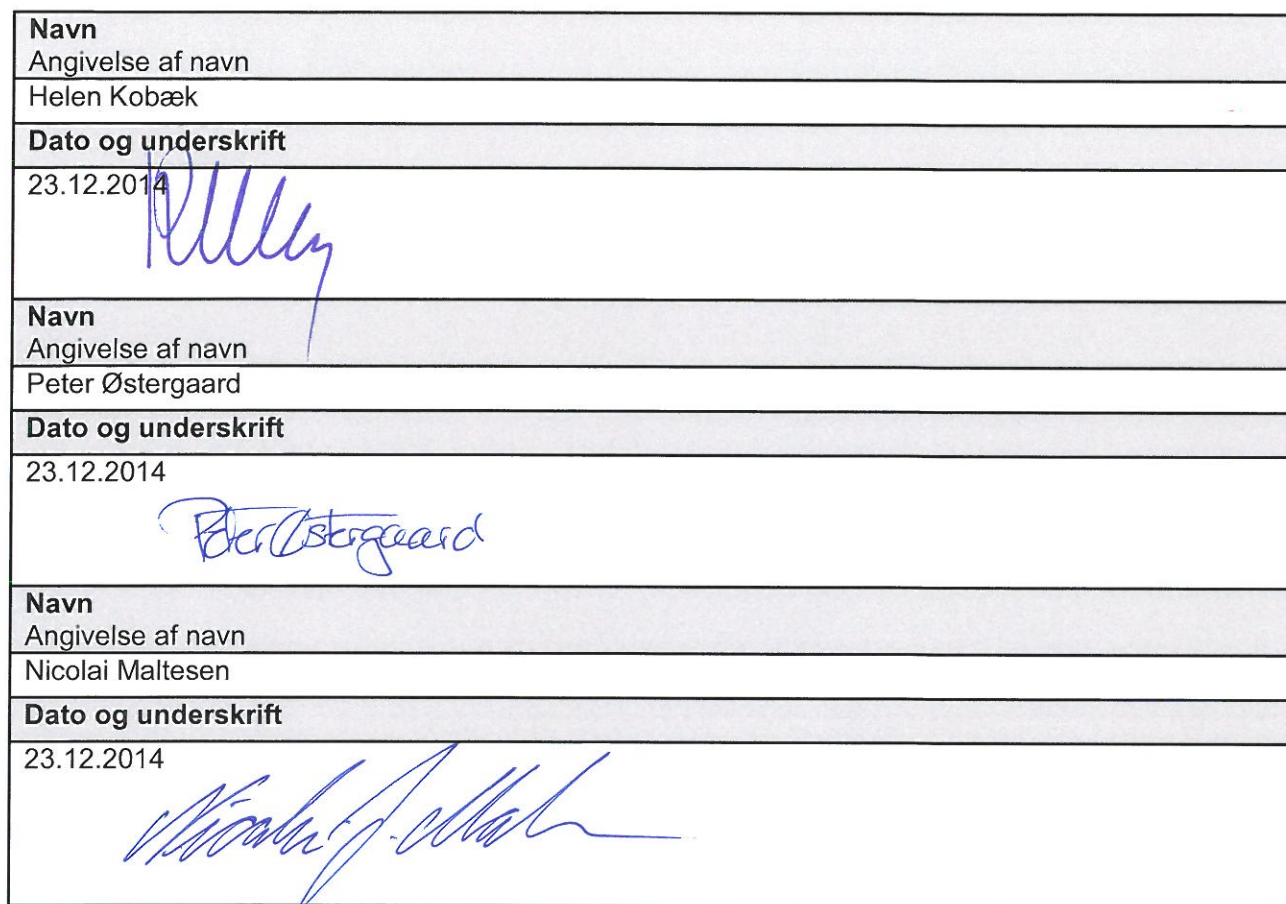 Navn
Angivelse af navn
Helen Kobæk
Dato og underskrift
23.12.2014
Navn
Angivelse af navn
Peter Østergaard
Dato og underskrift
23.12.2014
Peter Østergaard
Navn
Angivelse af navn
Nicolai Maltesen
Dato og underskrift
23.12.2014